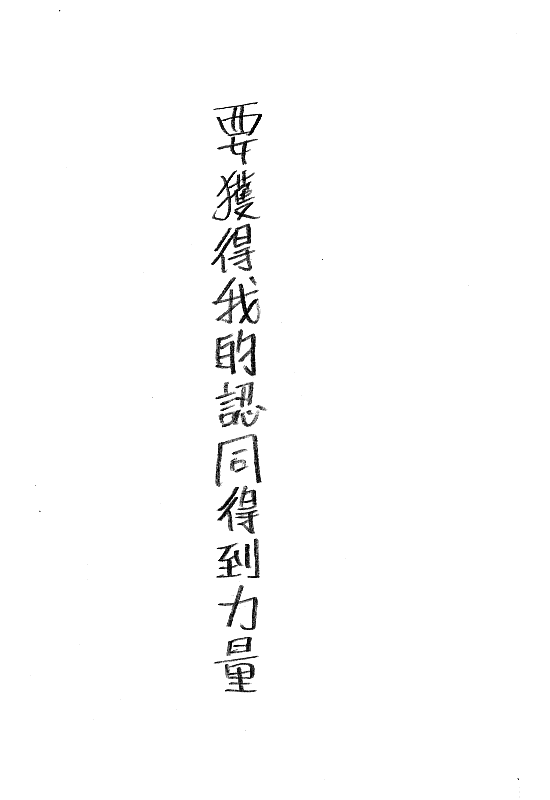 要獲得我的認同得到力量